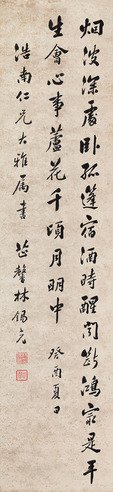 烟波深處卧孤蓬宿酒時醒聞斷鴻最是平
生會心事蘆花千頃月明中 癸酉夏日
浩南仁兄大雅属書 芷馨林錫光